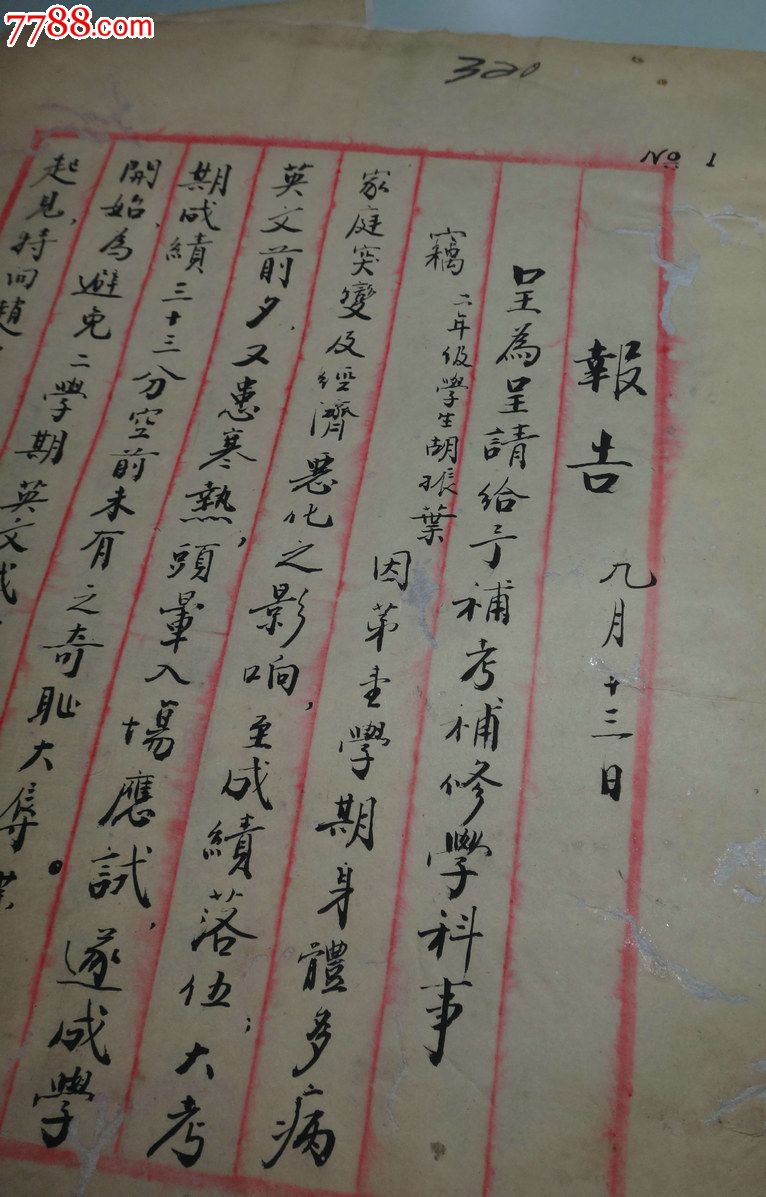 7788.com
免费
320
No 1
報告 九月十三日
呈為呈請給予補考補修學科事
竊二年級學生胡振葉因第壹學期身體多病
家庭突變及經濟惡化之影响,至成績落伍;大考
英文前夕,又患寒熱,頭暈入場應試,遂成學
期成績三十三分空前未有之奇恥大辱。
開始、為避免二學期英文成
起見,特向趙